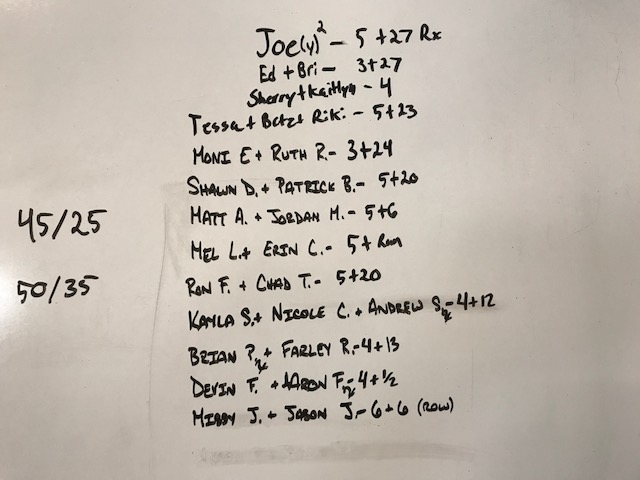 Joe(y)² - 5+27 Rx
Ed + Bri - 3+27
Sherry + Kaitlyn - 4
Tessa + Betz + Riki - 5+23
MONI E + RUTH R. - 3+24
SHAWN D. + PATRICK B. - 5+20
45/25
MATT A. + JORDAN M. - 5+6
MEL L. + ERIN C. - 5+ Run
50/35
RON F. + CHAD T. - 5+20
KAYLA S. + NICOLE C. + ANDREW S. - 4+12
BRIAN P. + FARLEY R. - 4+13
DEVIN F. + AARON F. - 4+1/2
MISSY J. + JASON J - 6+6 (ROW)